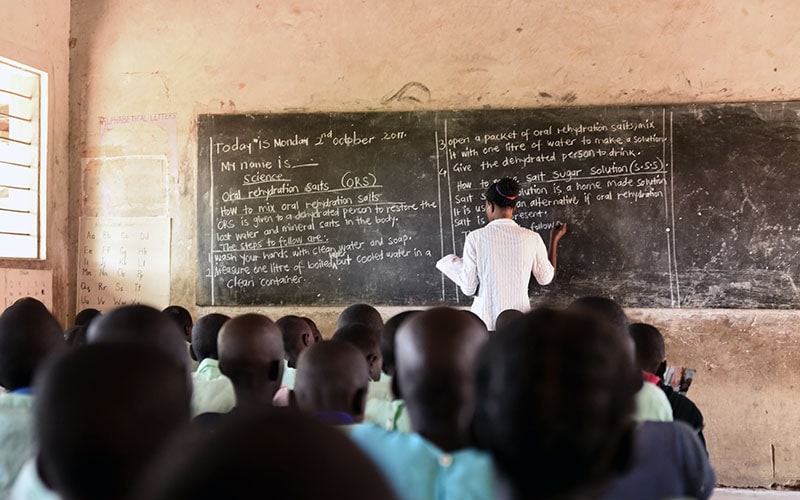 ALPHABETICAL LETTERS
Aa
Today is Monday 2nd october 2017.
My name is
Science
Oral rehydration Salts (ORS)
How to mix oral rehydration salts
ORS is given to a dehydrated person to restore the
lost water and mineral salts in the body.
The steps to follow are:
1 wash your hands with clean water and soap.
2 Measure one litre of boiled but cooled water in a
clean container.
3 open a packet of oral rehydration salts, mix
it with one litre of water to make a solution.
4 Give the dehydrated person to drink.
How to Salt Sugar Solution (S.S.S)
Salt solution is a home made solution
It is us an alternative if oral rehydration
Salt is present.
follow